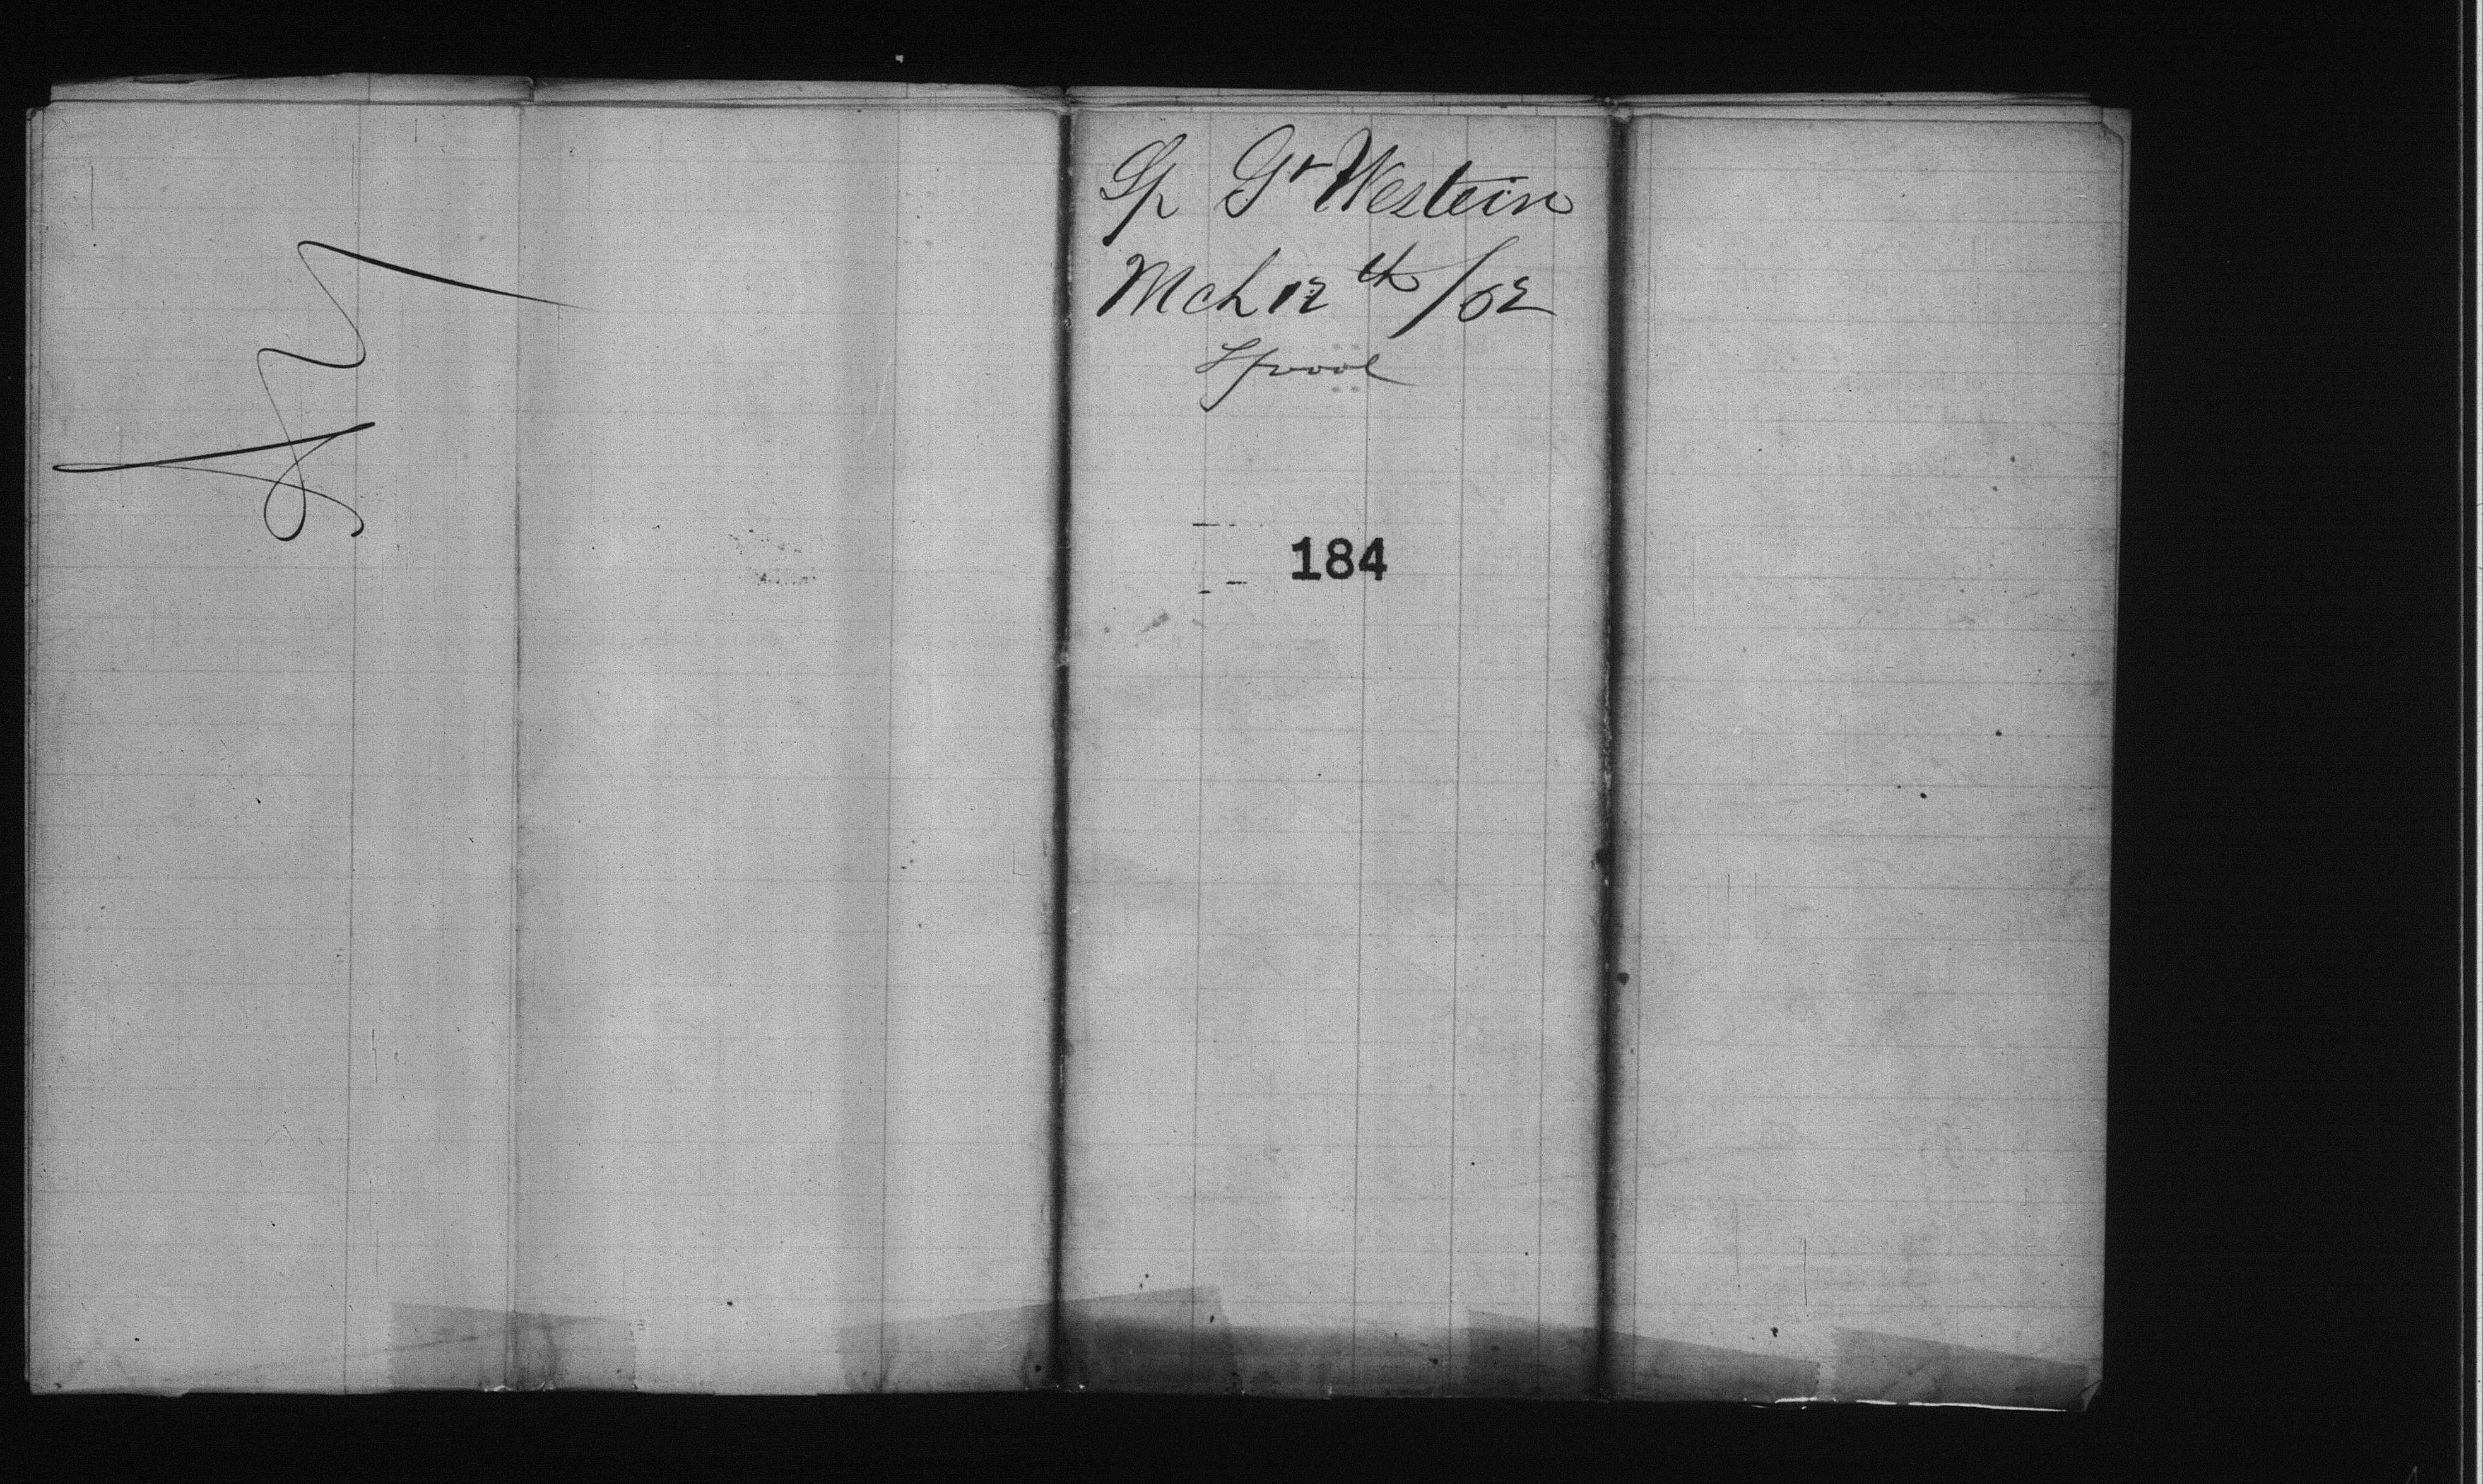 Sp Gr Western
Mch 12th/02
Lpool
184